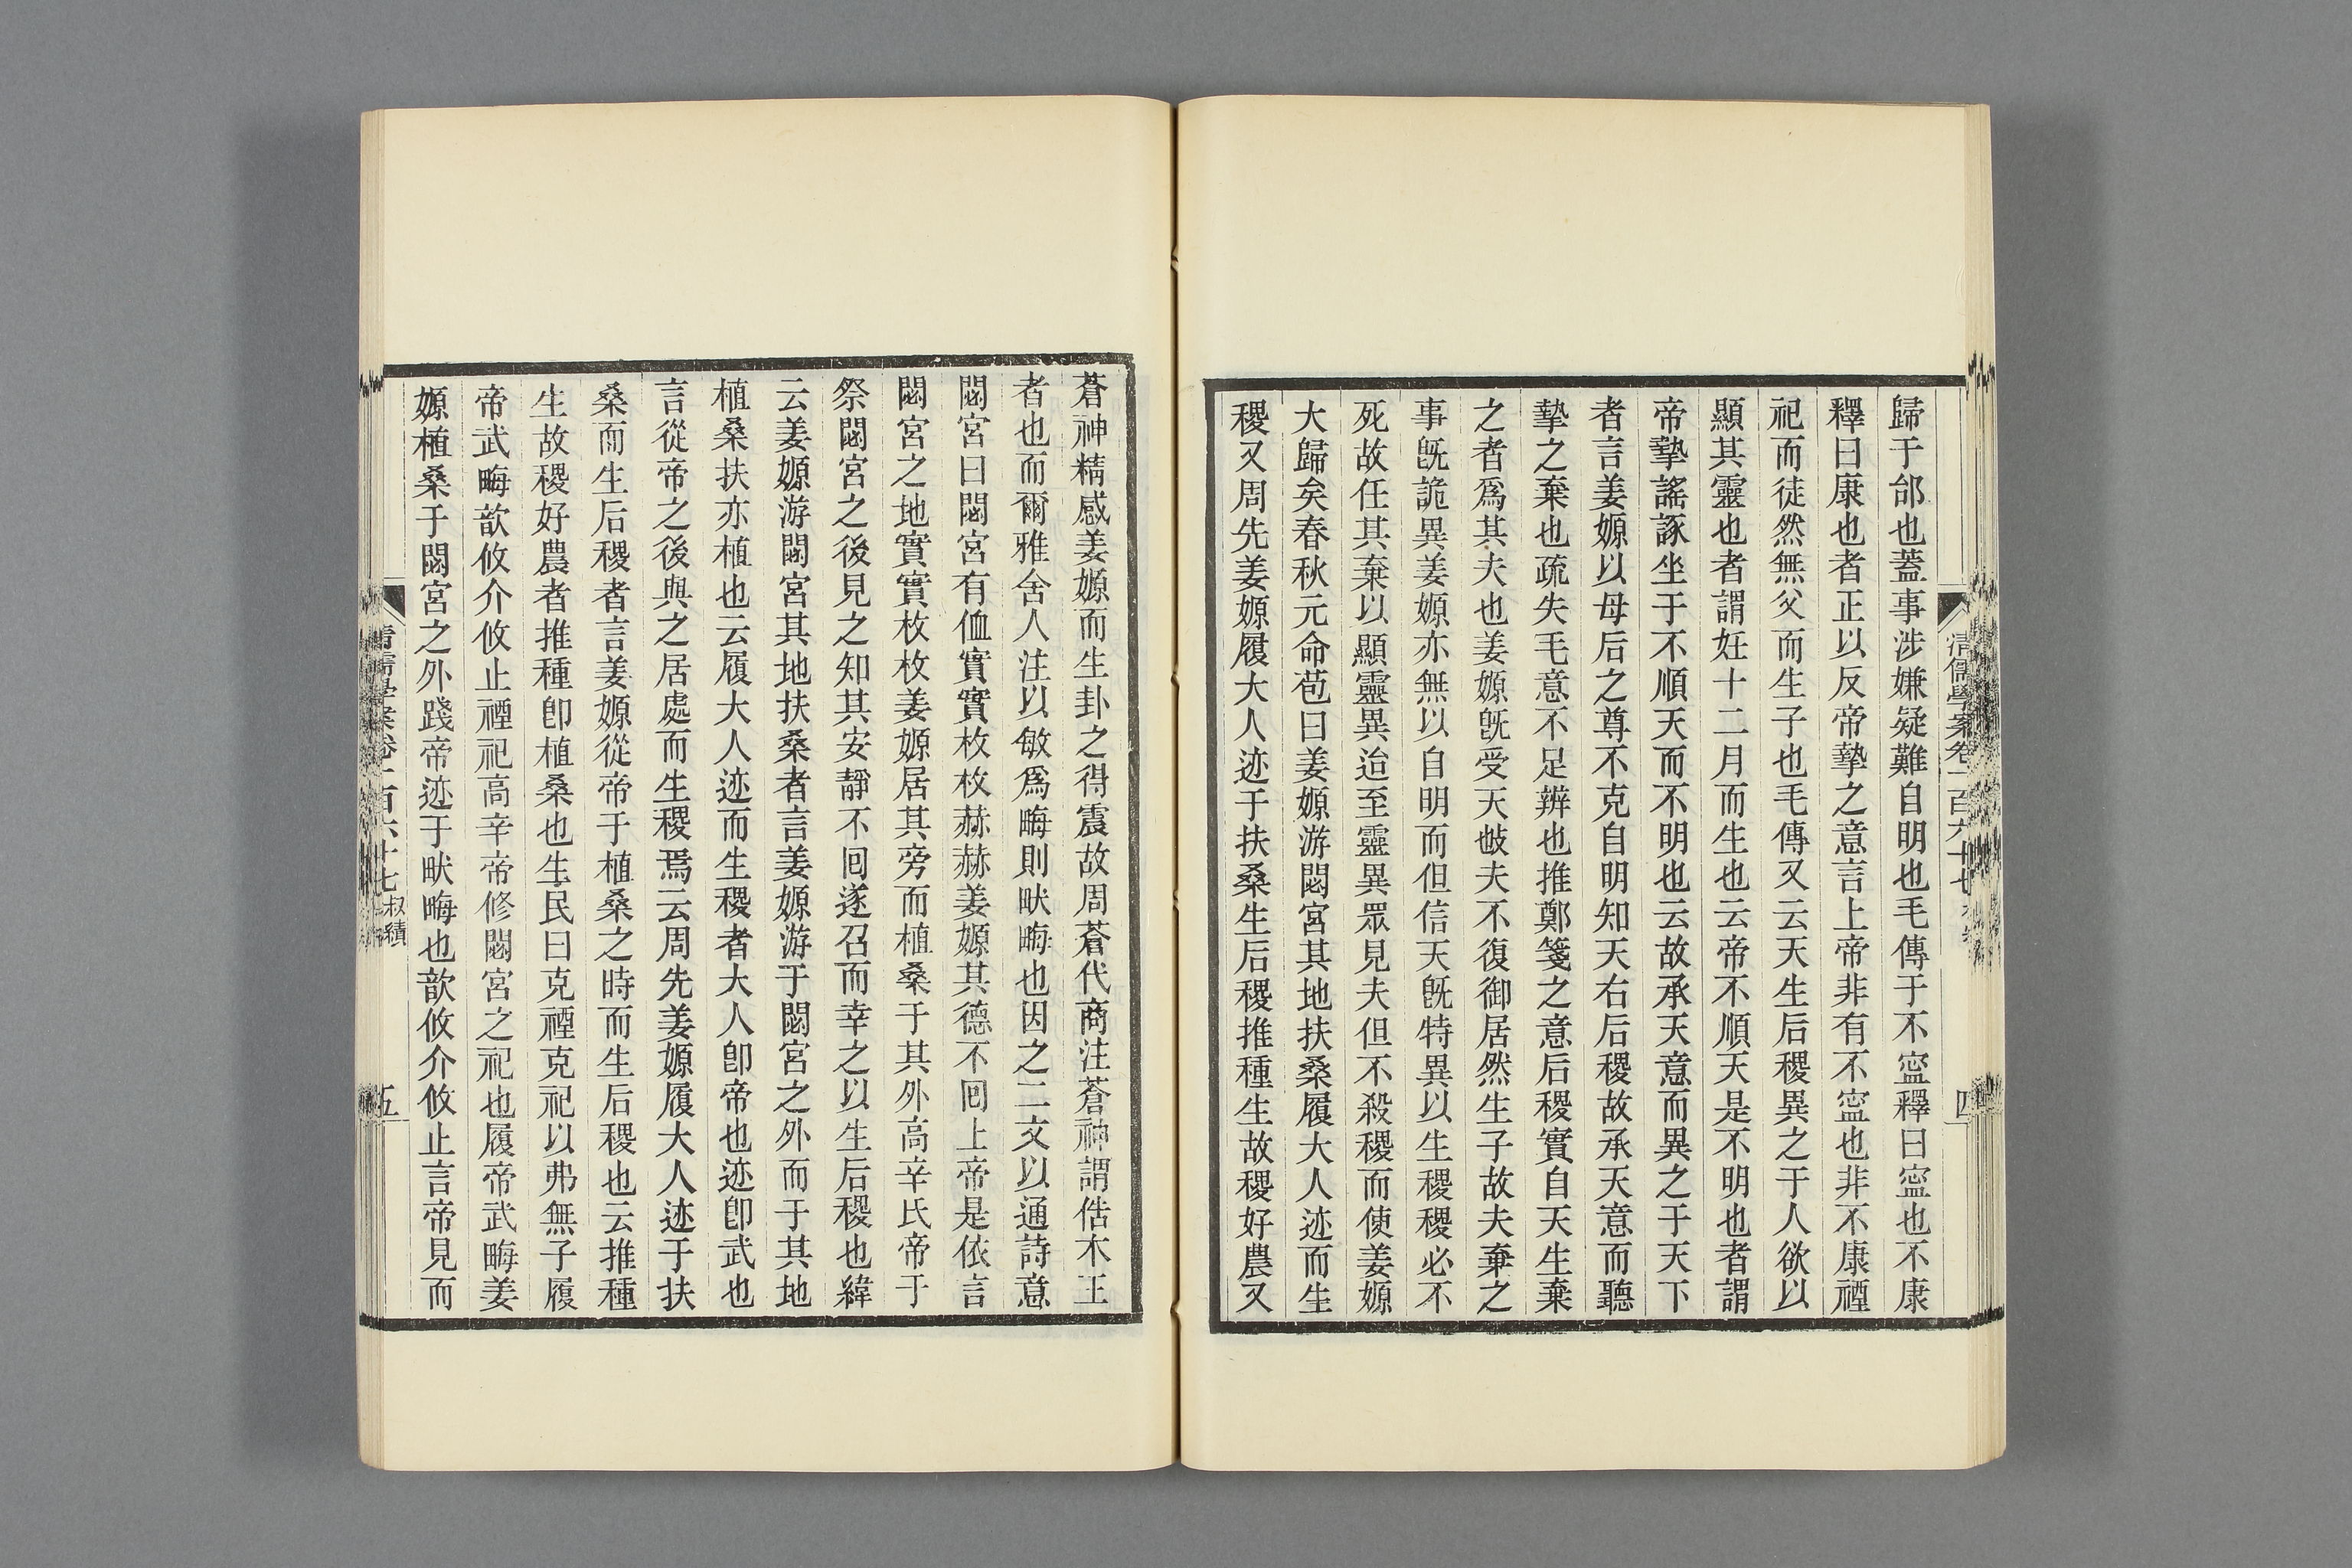 歸于邰也蓋事涉嫌疑難自明也毛傳于不寍釋曰寍也不康
釋曰康也者正以反帝摯之意言上帝非有不寍也非不康禋
祀而徒然無父而生子也毛傳又云天生后稷異之于人欲以
顯其靈也者謂妊十二月而生也云帝不順天是不明也者謂
帝摯謠諑坐于不順天而不明也云故承天意而異之于天下
者言姜嫄以母后之尊不克自明知天右后稷故承天意而聽
摯之棄也疏失毛意不足辨也推鄭箋之意后稷實自天生棄
之者爲其夫也姜嫄旣受天㱔夫不復御居然生子故夫棄之
事旣詭異姜嫄亦無以自明而但信天旣特異以生稷稷必不
死故任其棄以顯靈異迨至靈異眾見夫但不殺稷而使姜嫄
大歸矣春秋元命苞曰姜嫄游閟宮其地扶桑履大人迹而生
稷又周先姜嫄履大人迹于扶桑生后稷推種生故稷好農又
清儒學案卷一百六十七
四
蒼神精感姜嫄而生卦之得震故周蒼代商注蒼神謂俈木王
者也而爾雅舍人注以敏爲畮則畎畮也因之二文以通詩意
閟宮曰閟宮有侐實實枚枚赫赫姜嫄其德不回上帝是依言
閟宮之地實實枚枚姜嫄居其旁而植桑于其外高辛氏帝于
祭閟宮之後見之知其安靜不回遂召而幸之以生后稷也緯
云姜嫄游閟宮其地扶桑者言姜嫄游于閟宮之外而于其地
植桑扶亦植也云履大人迹而生稷者大人卽帝也迹卽武也
言從帝之後與之居處而生稷焉云周先姜嫄履大人迹于扶
桑而生后稷者言姜嫄從帝于植桑之時而生后稷也云推種
生故稷好農者推種卽植桑也生民曰克禋克祀以弗無子履
帝武畮歆攸介攸止禋祀高辛帝修閟宮之祀也履帝武畮姜
嫄植桑于閟宮之外踐帝迹于畎畮也歆攸介攸止言帝見而
清儒學案卷一百六十七
叔績
五